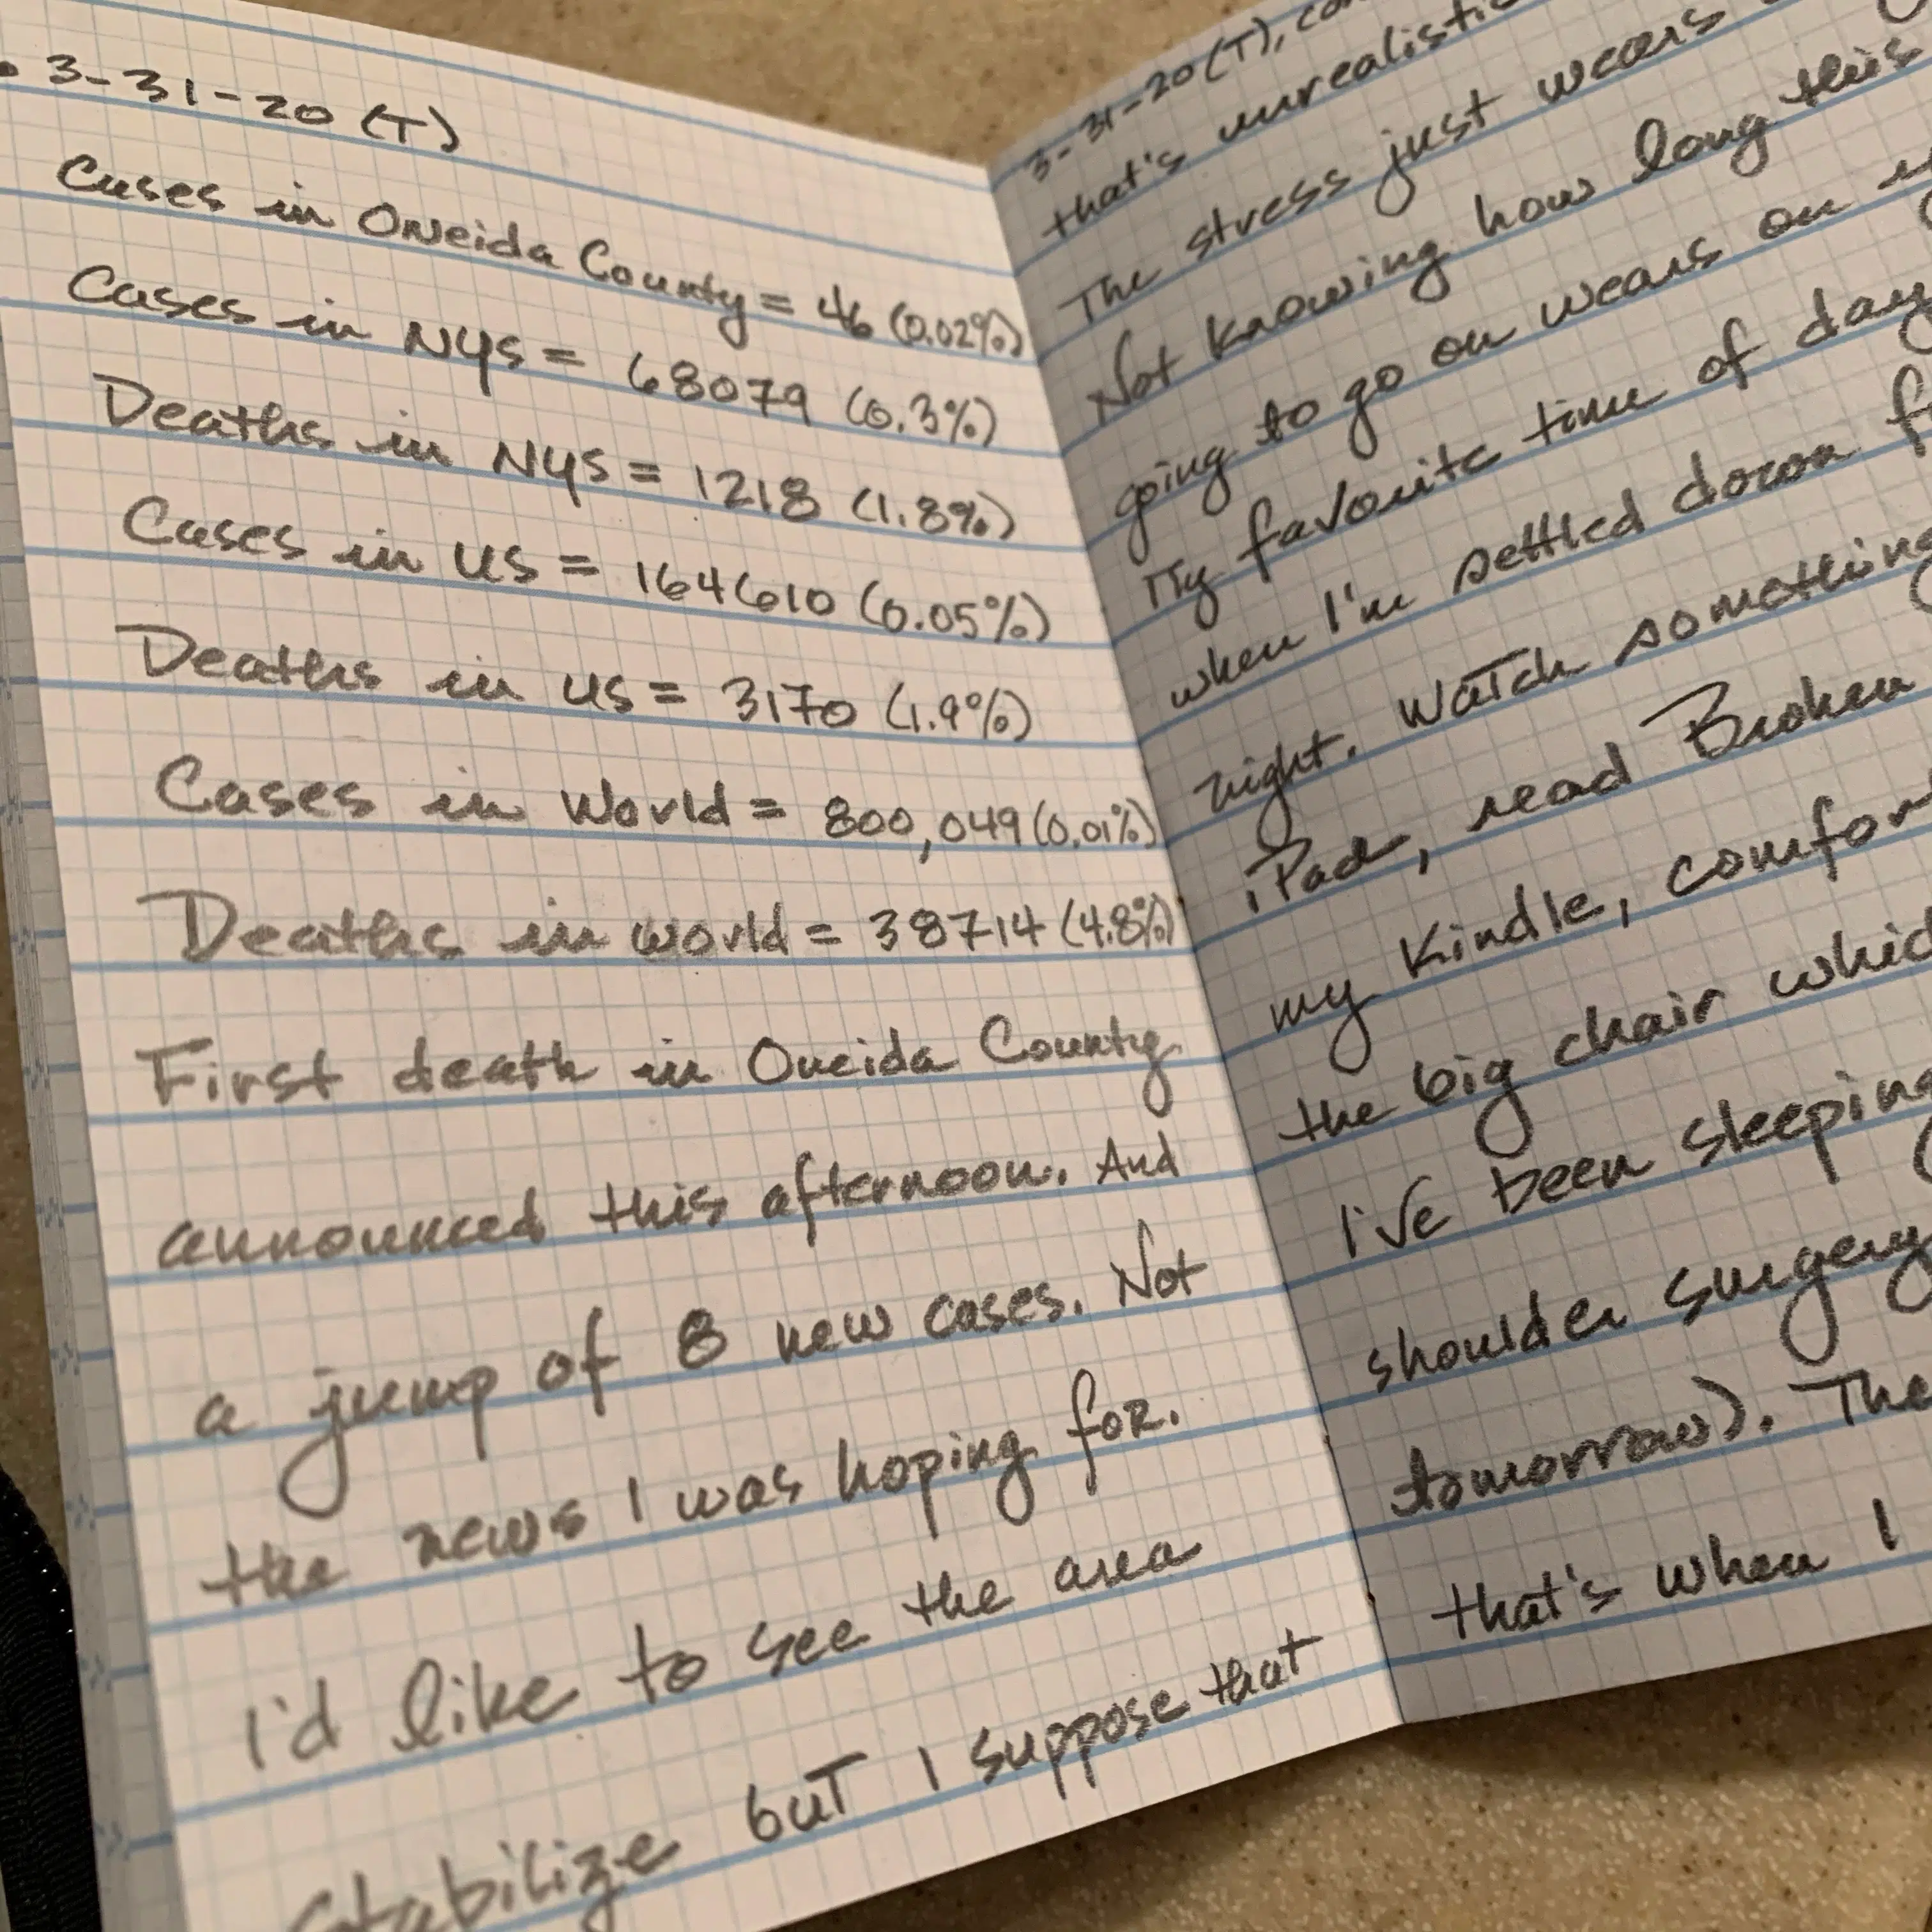 . 3-31-20 (T)
Cases in Oneida County = 46 (0.02%)
Cases in NYS = 68079 (0.3%)
Deaths in NYS = 1218 (1.8%)
Cases in US = 164610 (0.05%)
Deaths in US = 3170 (1.9%)
Cases in World = 800,049 (0.01%)
Deaths in World = 38714 (4.8%)
First death in Oneida County
announced this afternoon. And
a jump of 8 new cases. Not
the news I was hoping for.
I'd like to see the area
stabilize but I suppose that
3-31-20 (T),
that's unrealistic
The stress just wears
Not knowing how long this
going to go on wears on
My favorite time of day
when I'm settled down
night. Watch something
iPad, read Broken
my Kindle,
the big chair
I've been sleeping
shoulder surgery
tomorrow). The
that's when I